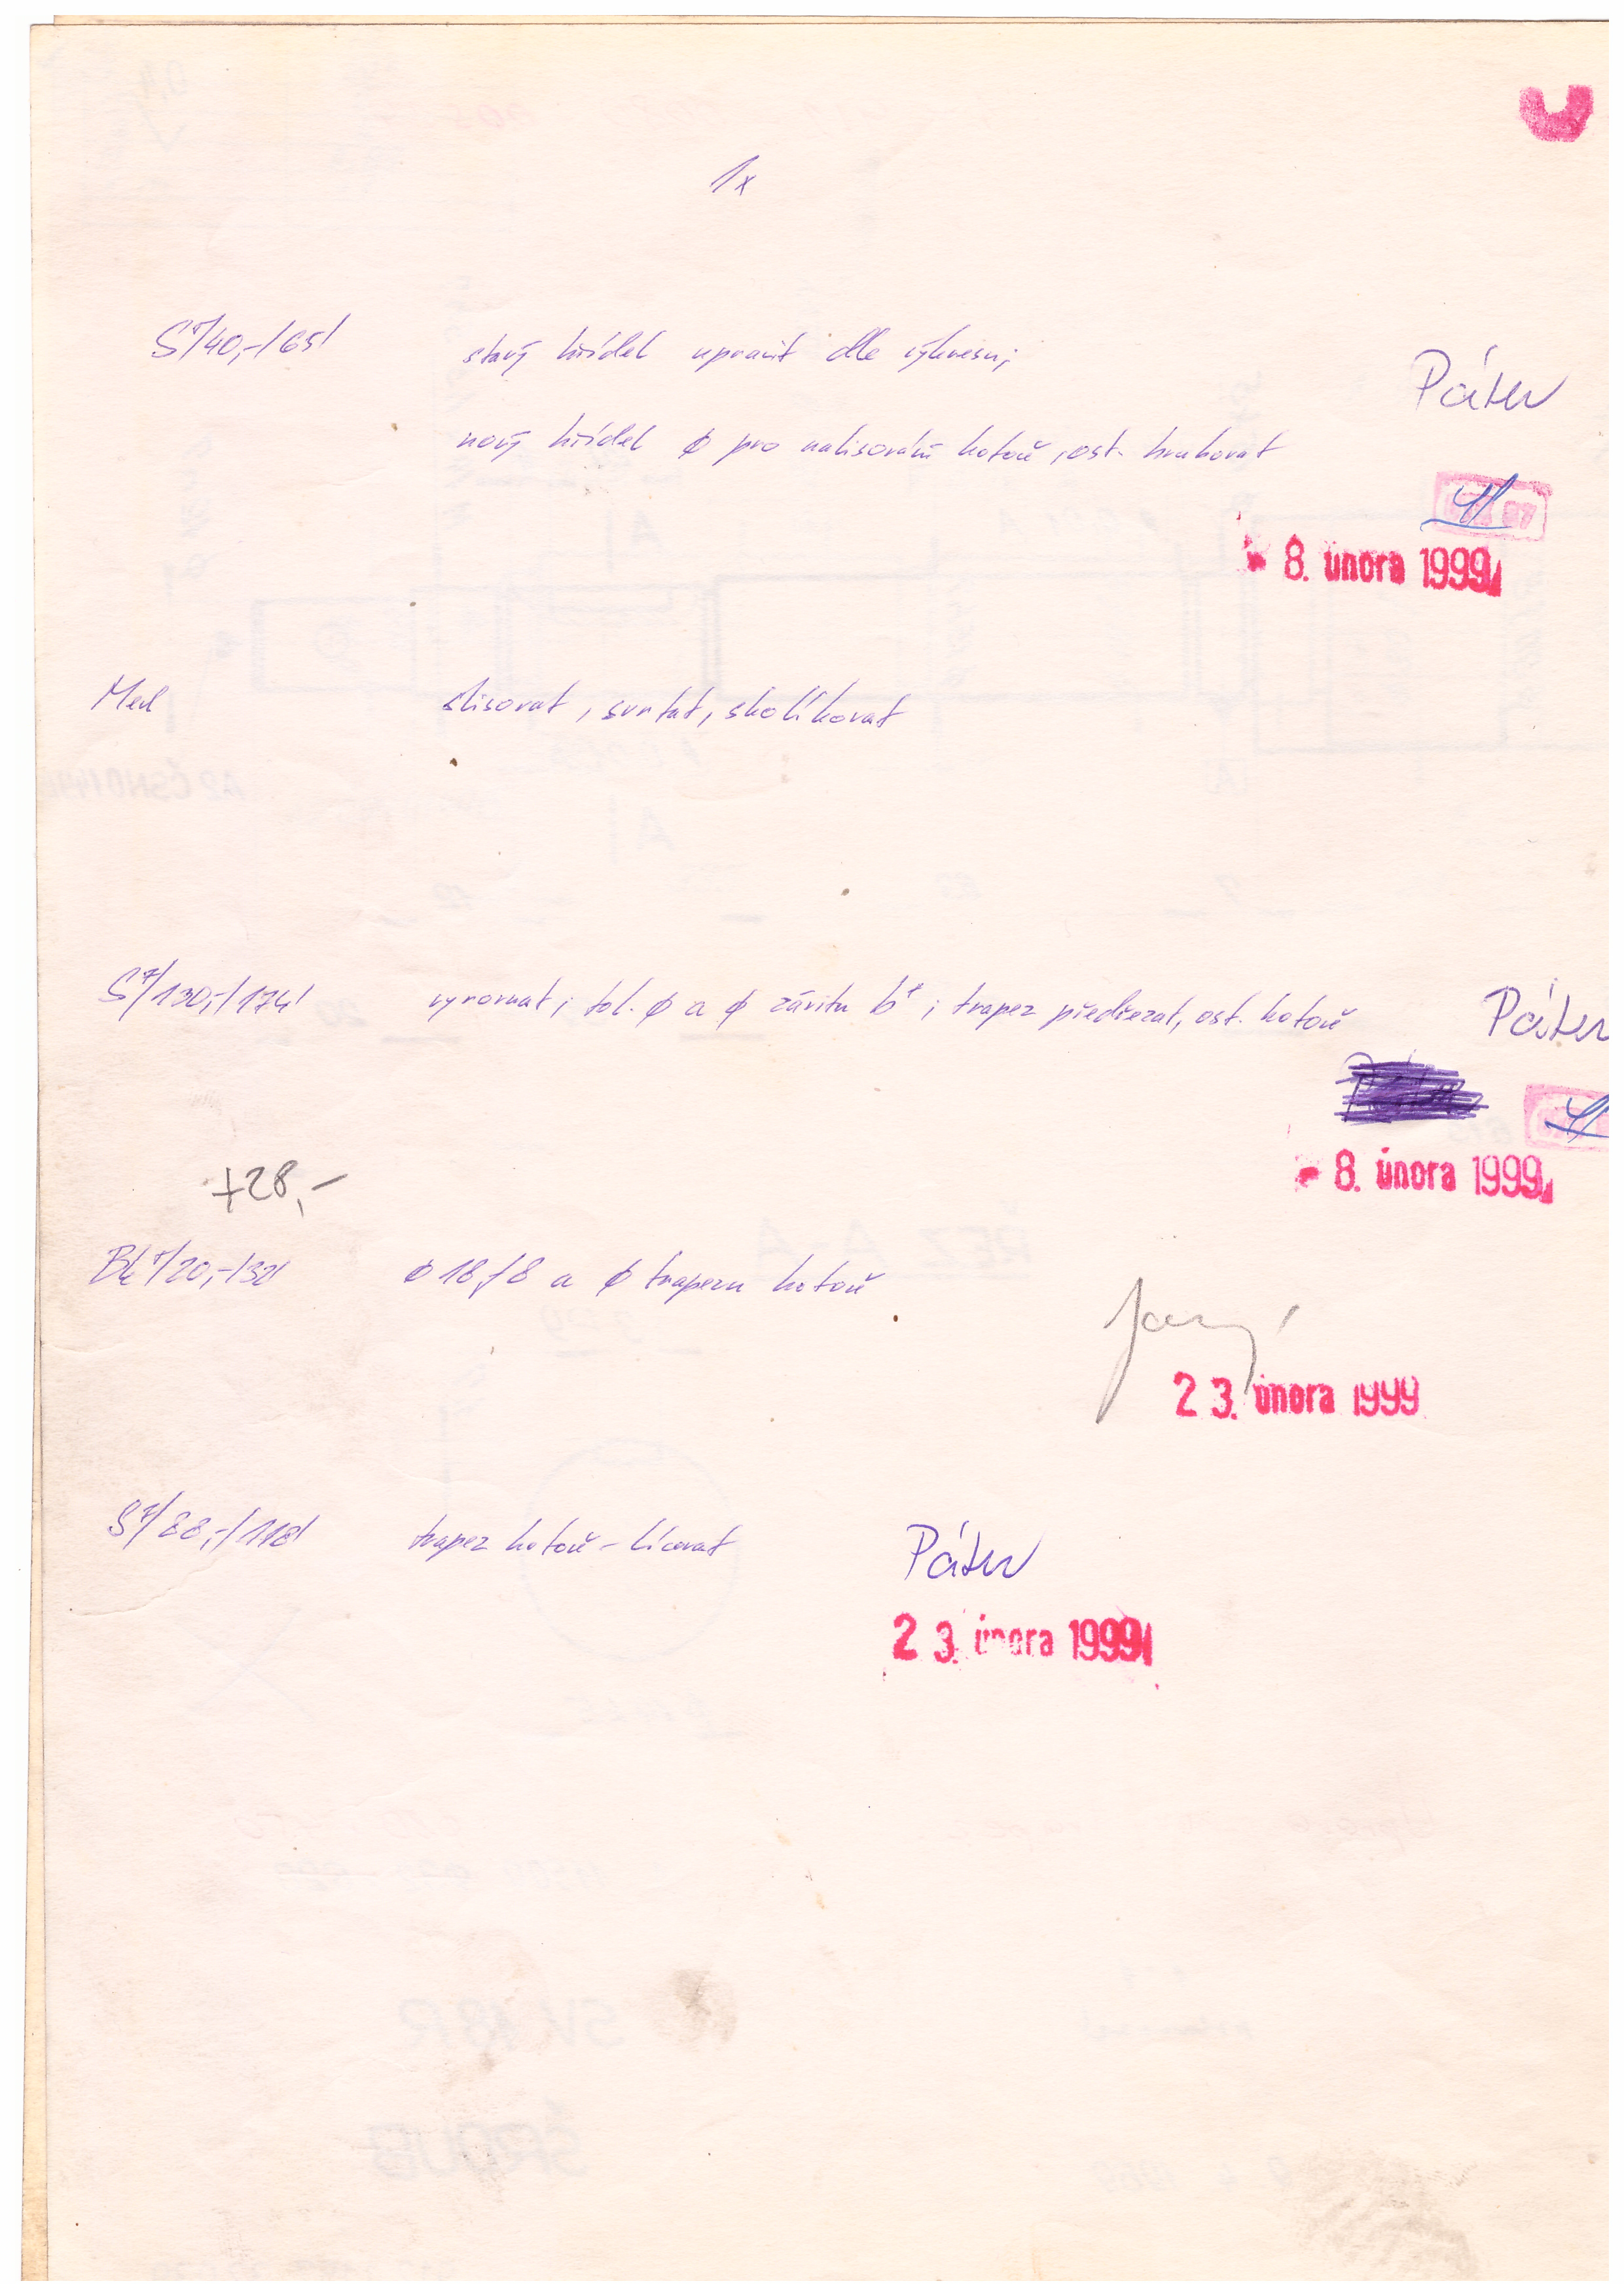 1x
S7/40,-/65'
starý hřídel upravit dle výkresu;
Páter
nový hřídel ø pro nalisování hotově, ost. hrubovat
8. února 1999
Mech
slisovat, svrtat, skolíkovat
S7/130,-/174'
vyrovnat; tol. ø a ø závitu ; trapez předřezat, ost. hotově
Páter
8. února 1999
+28,-
Bk7/20,-/32'
ø 18f8 a ø trapezu hotově
23. února 1999
S7/88,-/118'
trapez hotově - lícovat
Páter
23. února 1999